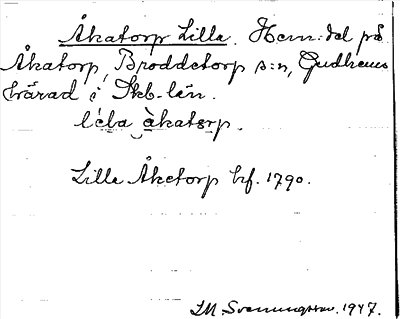 Åkatorp Lilla. Hem: del på
Åkatorp, Broddetorp s:n, Gudhems
härad i Skb-län.
lìcla àkatorp.
Lilla Åketorp hf. 1790.
SM Svenungsson. 1947.